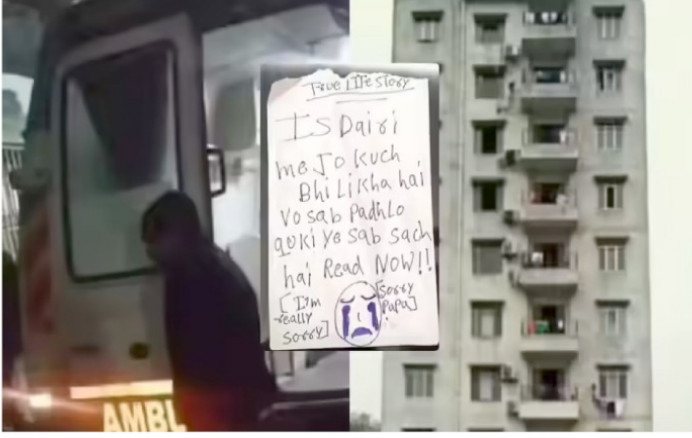 True life story
Is Dairi
me Jo kuch
Bhi Likha hai
Vo sab Padhlo
quki ye sab sach
hai Read NOW!!
[I'm
really
sorry]
[sorry
Papa]
AMBU